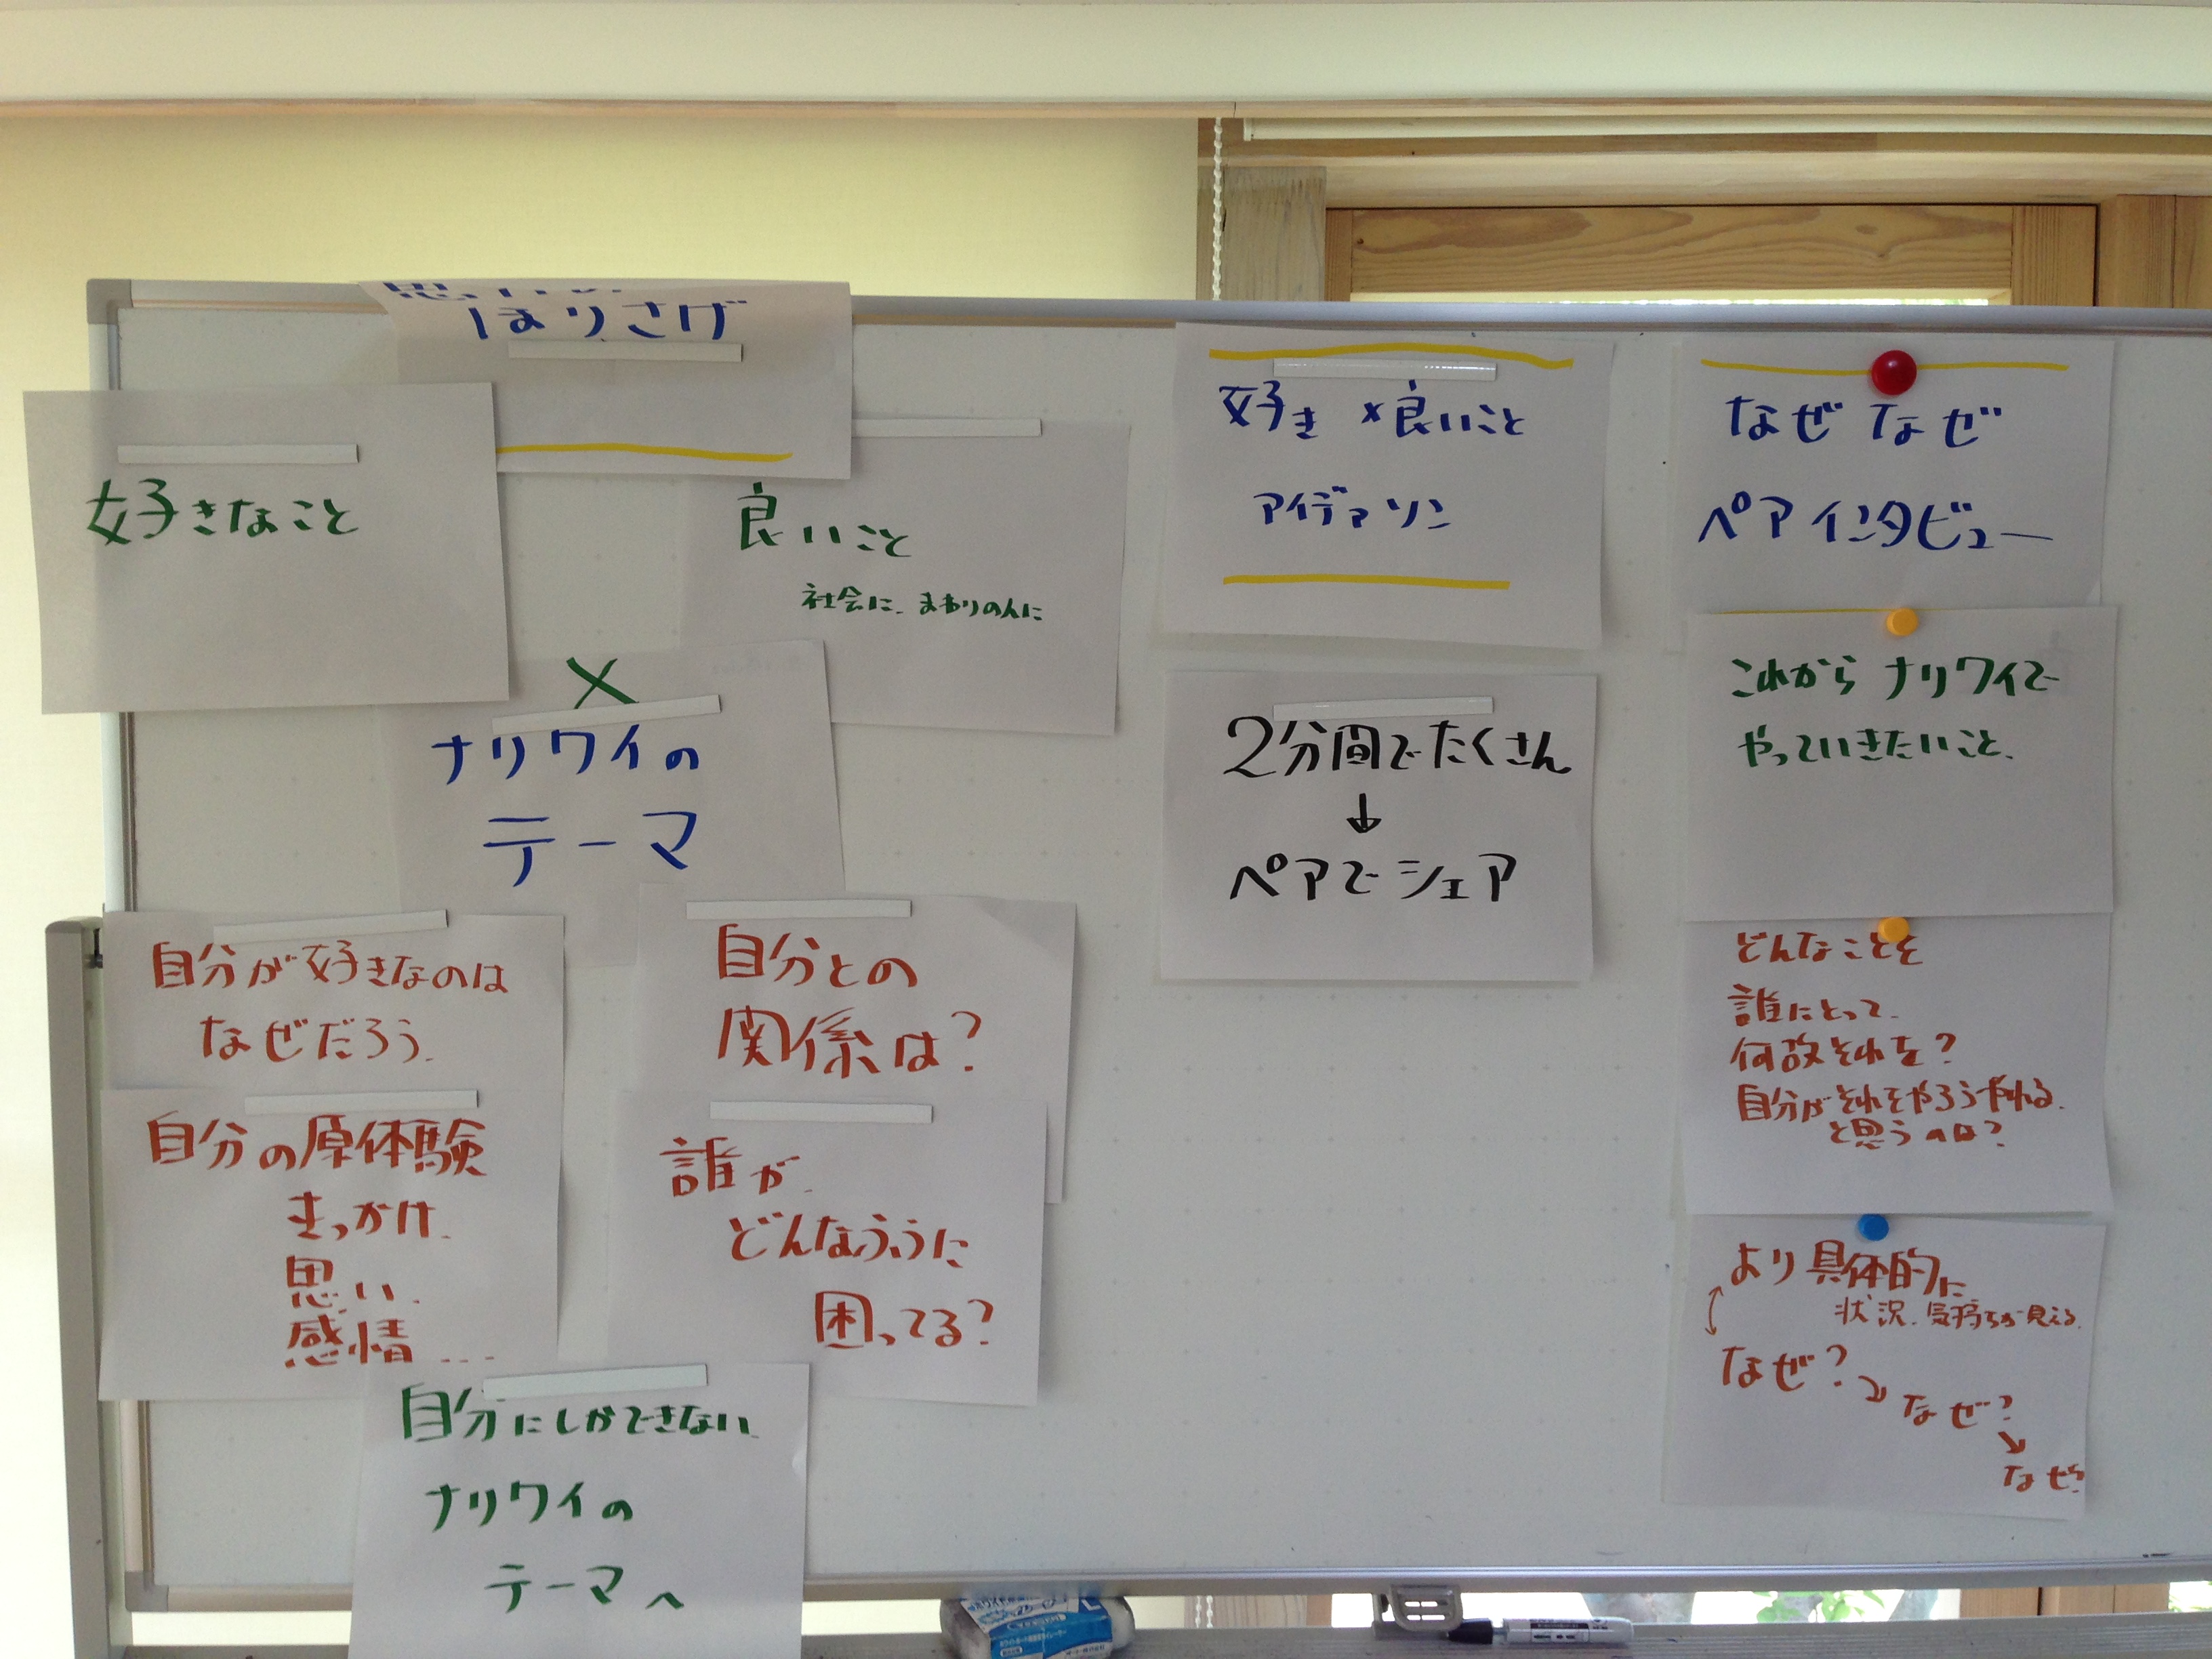 ほりさげ
好きなこと
良いこと
社会に、まわりの人に
×
ナリワイの
テーマ
自分が好きなのは
なぜだろう。
自分の原体験
きっかけ、
思い、
感情...
自分との
関係は?
誰が、
どんなふうに
困ってる?
自分にしかできない
ナリワイの
テーマへ
好き×良いこと
アイデアソン
2分間でたくさん
↓
ペアでシェア
なぜなぜ
ペアインタビュー
これからナリワイで
やっていきたいこと、
どんなことを
誰にとって、
何故それを?
自分がそれをやろうやれる、
と思うのは?
より具体的に
状況、気持ちが見える、
なぜ?
なぜ?
なぜ?